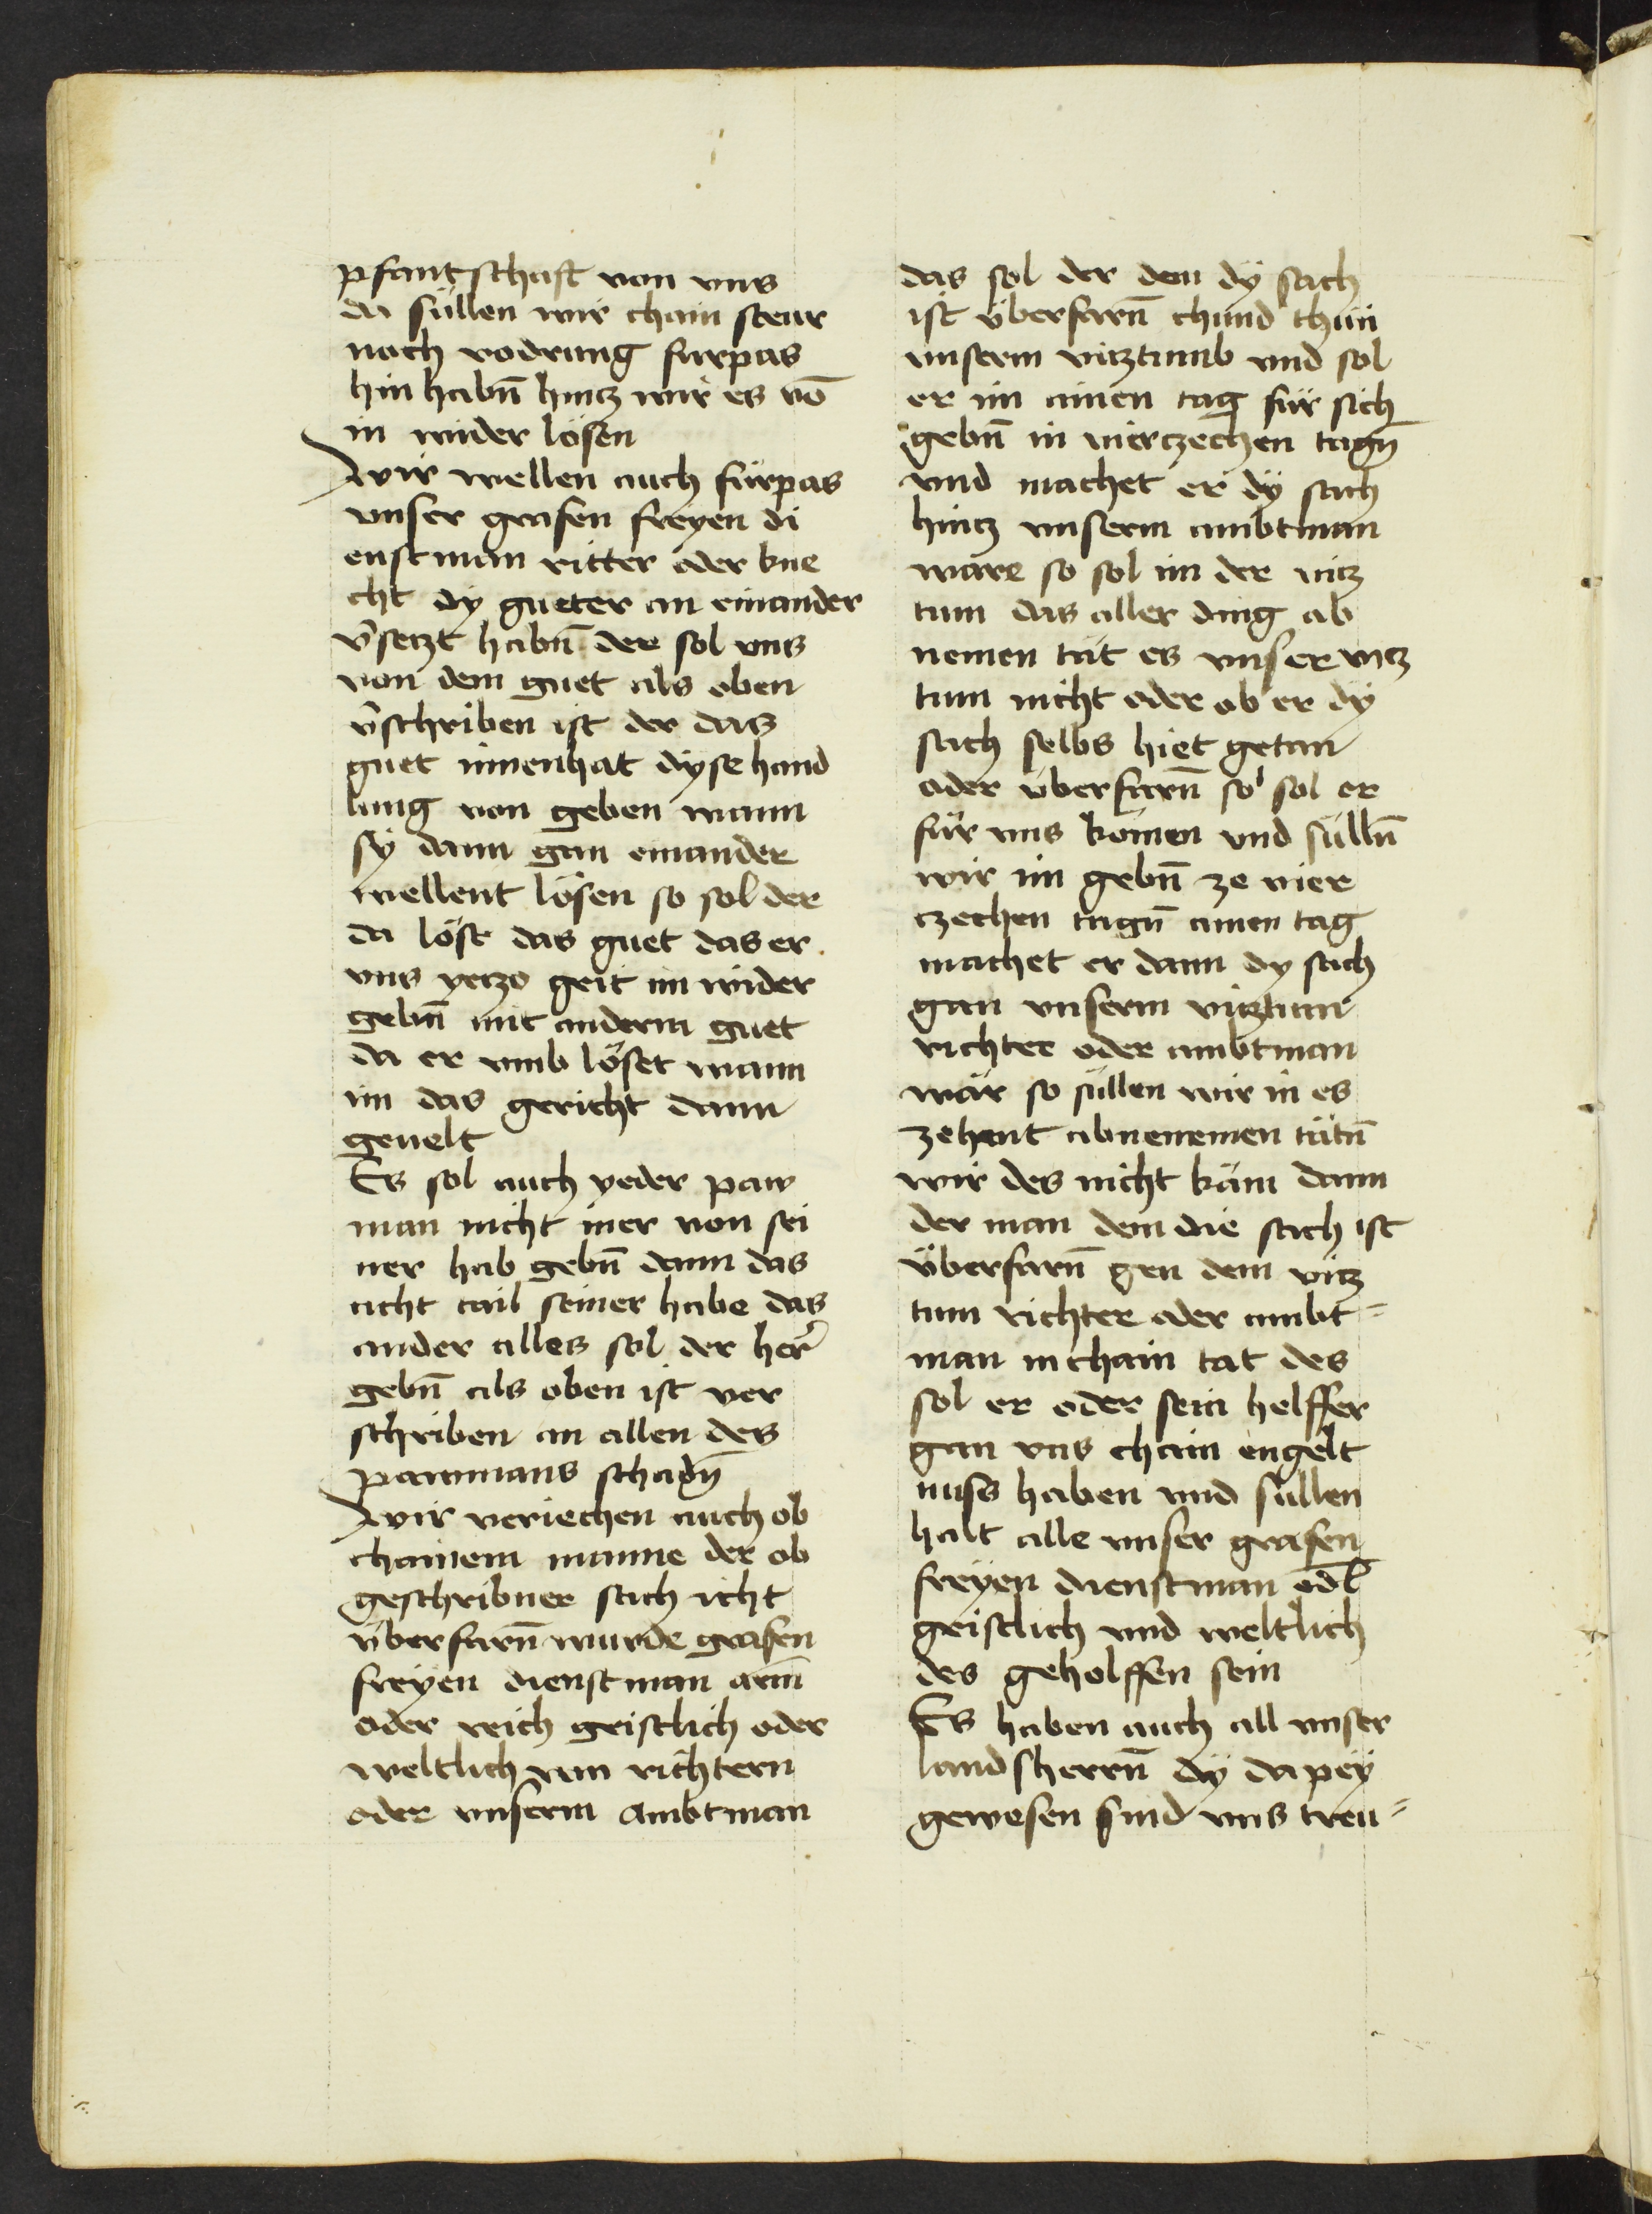 pfantschaft von vns
da süllen wir chain steur
noch vodrung furpas
hin habn̄ hintz wir es vō
in wider lösen
Wir wellen auch fürpas
vnser grafen freyen di
enstman ritter oder kne
cht dy gueter an einander
v̄setzt habn̄ der sol vns
von dem guet als oben
v̄schriben ist der das
guet innenhat dyse hand
lung von geben wann
sy dann gan einander
wellent lösen so sol der
da löst das guet das er
vns yetzo geit im wider
gebn̄ mit anderm guet
da er vmb löset wann
im das gericht dann
geuelt
Es sol auch yeder paw
man nicht mer von sei
ner hab gebn̄ dann das
acht tail seiner habe das
ander alles sol der her̄
gebn̄ als oben ist ver
schriben an allen des
pawmans schadn̄
Wir veriechen auch ob
chainem manne der ob
geschribner sach icht
überfarn̄ wurde grafen
freyen dienstman arm̄
oder reich geistlich oder
weltlich von richtern
oder vnserm Ambtman
das sol der dem dÿ sach
ist überfarn̄ chund thun
vnserm vitztumb vnd sol
er im ainen tag für sich
gebn̄ in vierczechen tagn̄
vnd machet er dÿ sach
hintz vnserm ambtman
ware so sol im der vitz
tum das aller ding ab
nemen tät es vnser vitz
tum nicht oder ob er dÿ
sach selbs hiet getan
oder überfarn̄ so sol er
für vns komen vnd sülln̄
wir im gebn̄ ze vier
czechen tagn̄ ainen tag
machet er dann dy sach
gan vnserm vitztum
richter oder ambtman
wär so süllen wir in es
zehent abnenemen tätn̄
wir des nicht käm dann
der man dem die sach ist
überfarn̄ gen dem vitz
tum richter oder ambt=
man in chain tat des
sol er oder sein helffer
gan vns chain engelt
nuss haben vnd sullen
halt alle vnser grafen
freÿen dienstman edl̄
geistlich vnd weltlich
des geholffen sein
Es haben auch all vnser
landsherrn̄ dÿ dapeÿ
gewesen sind vns treu=